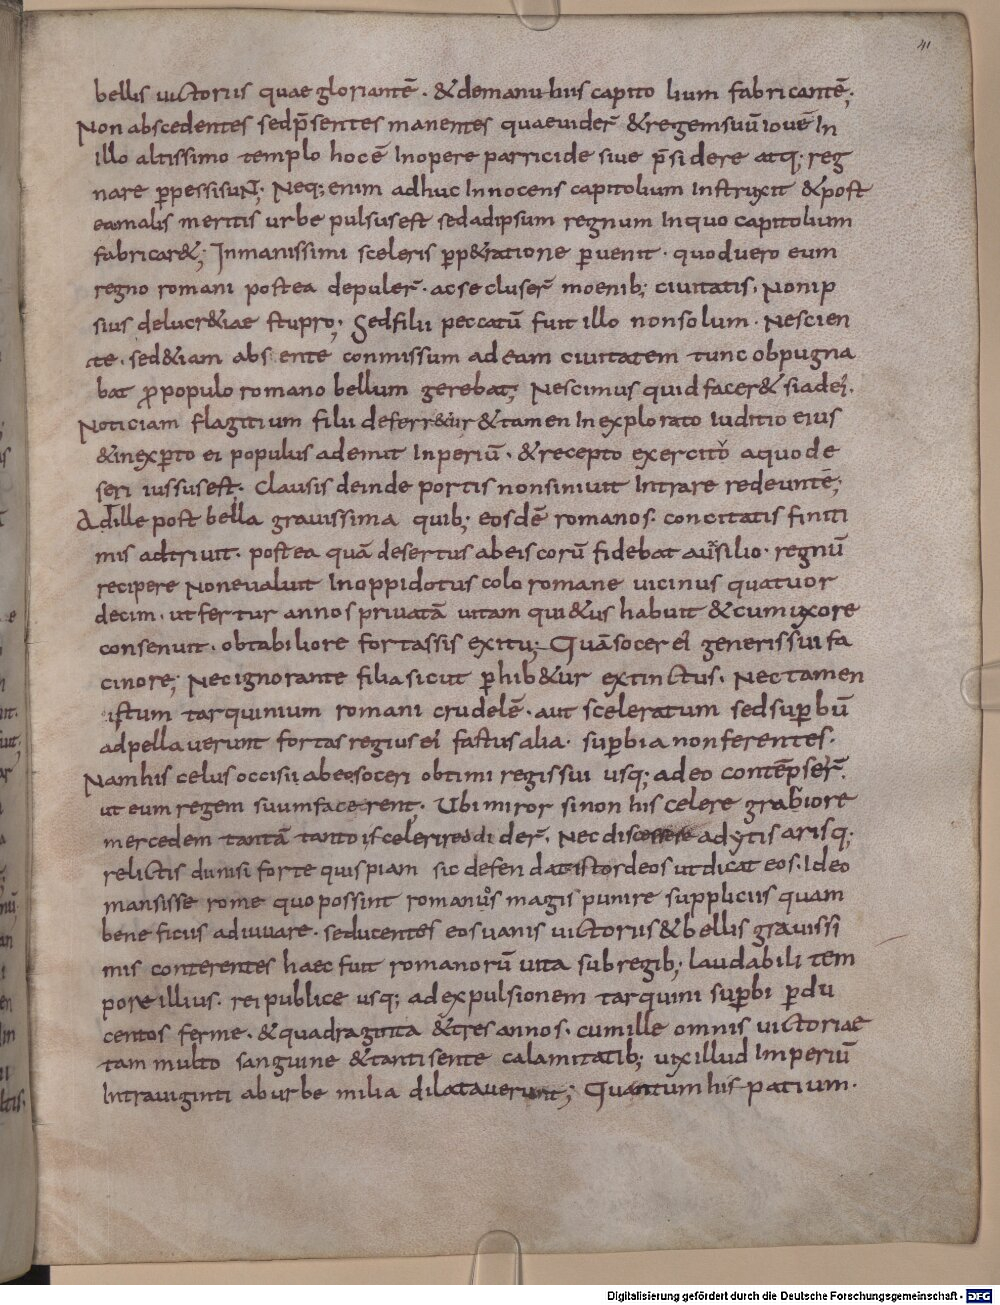 41
bellis uictoriis quae gloriantē · & demanubiis capitolium fabricantē;
Non abscedentes sed p̄sentes manentes quaeuider̄ & regem suū iouē In
illo altissimo templo hoc ē Inopere parricide siue p̄sidere atq; reg
nare ꝑpessi suN̄; Neq; enim adhuc Innocens capitolium Instruxit & post
eamalis meritis urbe pulsus est sed adipsum regnum Inquo capitolium
fabricar&; Inmanissimi sceleris ꝑp&ratione ꝑuenit · quod uero eum
regno romani postea depuler̄ · ac secluser̄ moenib; ciuitatis · Non ip
sius delucr&iae stupro; Sed filii peccatū fuit illo nonsolum · Nescien
te · sed &iam absente conmissum ad eam ciuitatem tunc obpugna
bat ꝓpopulo romano bellum gerebat; Nescimus quid facer& siadei ·
Noticiam flagitium filii deferr&ur & tamen Inexplorato iuditio eius
& inexꝑto ei populus ademit Inperiū · & recepto exercito aquo de
seri iussus est · clausis deinde portis nonsiniuit Intrare redeuntē;
Ad ille post bella grauissima quib; eosdē romanos · concitatis finiti
mis adtriuit · postea quā desertus abeis corū fidebat auxilio · regnū
recipere Non eualuit Inoppido tus colo romane uicinus quatuor
decim · ut fertur annos priuatā uitam qui&us habuit & cum uxore
consenuit · obtabiliore fortassis exitu; Quā socer ei generis sui fa
cinore; Nec ignorante filia sicut ꝑhib&ur extinctus · Nec tamen
istum tarquinium romani crudelē · aut sceleratum sed suꝑbū
adpellauerunt fortas regius ei factus alia · suꝑbia non ferentes ·
Nam his celus occisii abeo soceri obtimi regis sui usq; adeo contēpser̄
ut eum regem suum facerent · Ubi miror sinon his celere grabiore
mercedem tantā tanto is celeri reddider̄ · Nec dis adytis arisq;
relictis dum isi forte quispiam sic defendat istor deos ut dicat eos · Ideo
mansisse rome quo possint romanos magis punire suppliciis quam
bene ficiis adiuuare · seducentes eos uanis uictoriis & bellis grauissi
mis conterentes haec fuit romanorū uita sub regib; laudabili tem
pore illius · rei publice usq; ad expulsionem tarquini suꝑbi ꝑdu
centos ferme · & quadraginta & tres annos · cum ille omnis uictoriae
tam multo sanguine & tantis ente calamitatib; uix illud Imperiū
Intra uiginti aburbe milia dilatauerunt; Quantum his patium ·
Digitalisierung gefördert durch die Deutsche Forschungsgemeinschaft - DFG